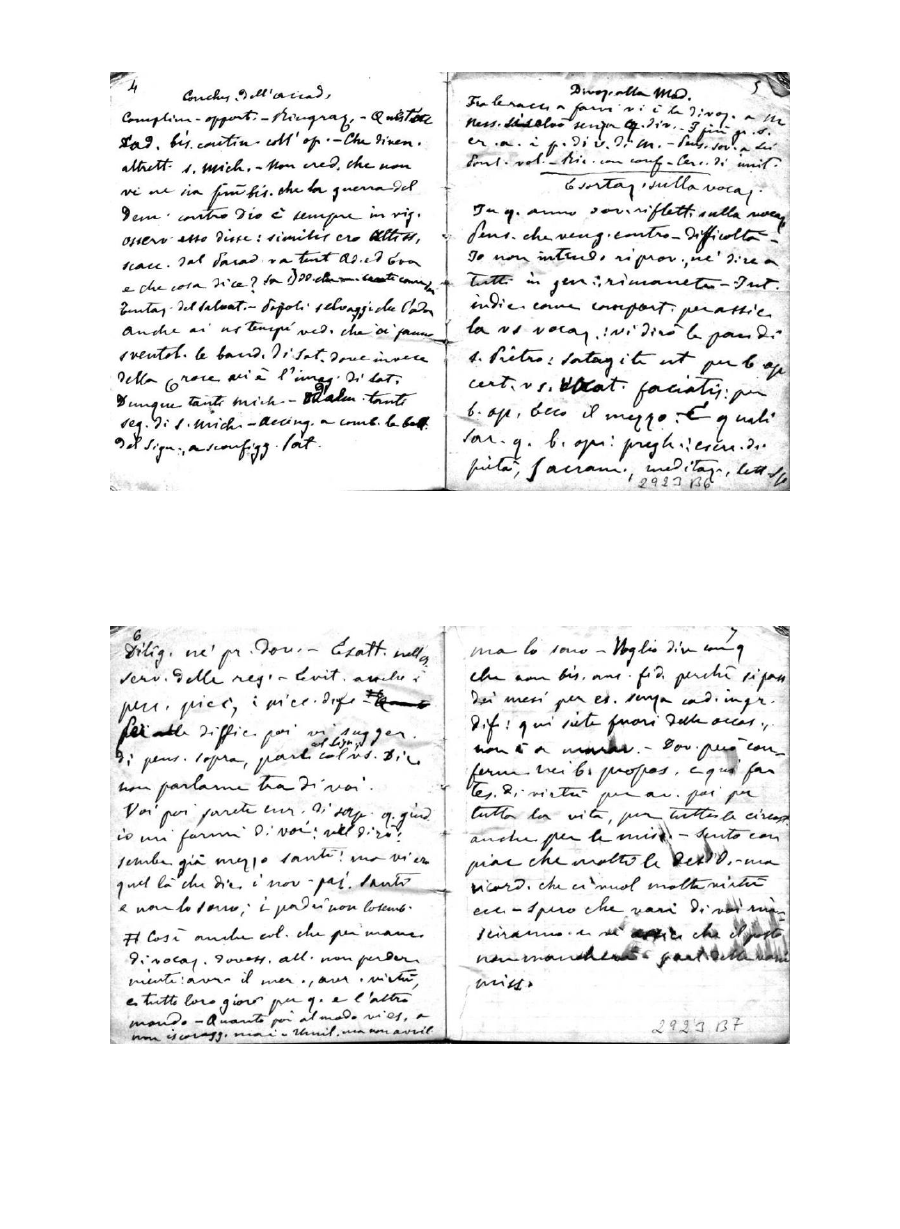 4
Conclus. dell'accad.
Complim. opport. - Ringraz. -
Dad. bis. contin. coll' op. - Che diven.
altrett. s. Mich. - Non cred. che non
vi ne sia più bis. che la guerra del
Dem. contro Dio è sempre in vig.
osserv. esso disse: similis ero Altiss.
scacc. dal Parad. va tent. Ad. ed Eva
e che cosa dice?
Tentaz. del Salvat. - Popoli selvaggi che l'ador
Anche ai ns tempi ved. che si fanno
sventol. le band. di Sat. dove invece
della Croce vi è l'imag. di Sat.
Dunque tanti Mich. - tanti
seg. di s. Mich. - Accing. a comb. le batt.
del Sign., a sconfigg. Sat.
5
Divoz. alla Mad.
Fra le racc. a farsi vi è la divoz. a M
Ness. si salvò senza q. div. - I più gr. s.
er. a. i p. di v. di M. - Pens. sov. a Lei
Ric. con conf. - Cerc. di imit.
Esortaz. sulla vocaz.
In q. anno dov. riflett. sulla vocaz
Pens. che veng. contro - difficoltà -
Io non intendo riprov., nè dire a
tutti in gen.: rimanete - Int.
indic. come comport. per assic.
la vs vocaz.: vi dirò le par. di
s. Pietro: satagite ut per b. op
cert. vs. vocat. faciatis: per
b. op. Ecco il mezzo. E quali
sar. q. b. op: pregh.: eserc. di
pietà, Sacram., meditaz., lett. s/6
2923 B6
6
Dilig. ne' pr. dov. - Esatt. nell'o.
serv. delle reg. - Evit. anche i
pecc. picc., i picc. dif. -
diffic. poi vi sugger.
di pens. sopra, parl. col vs. Dir.
al Sign.
non parlarne tra di voi.
Voi poi sarete cur. di sap. q. giud
io mi formi di voi: vel dirò:
sembr. già mezzo santi! ma vi er.
quel là che dic. i nov. paj. santi
e non lo sono; i padri non lo semb.
# Così anche col. che per manc.
di vocaz. dovess. all. non perder.
niente: avr. il mer., avr. virtù,
e tutto loro giov. per q. e l'altro
mondo - Quanto poi al modo vi es. a
non iscoragg. mai - Umil. ma non avvil
7
ma lo sono - Voglio dire con q
che non bis. anc. fid. perchè si pass
dei mesi per es. senza cad. in gr.
dif: qui siete fuori delle occas.,
non è a - Dov. però con-
ferm. nei b. propos. e qui far
tes. di virtù per av. poi per
tutta la vita, per tutte le circost.
anche per le miss. - Sento con
piac. che molti le desid. - ma
ricord. che ci vuol molta virtù
ecc. - Spero che vari di voi riu-
sciranno che il posto
non mancherà delle nostre
miss.
2923 B7